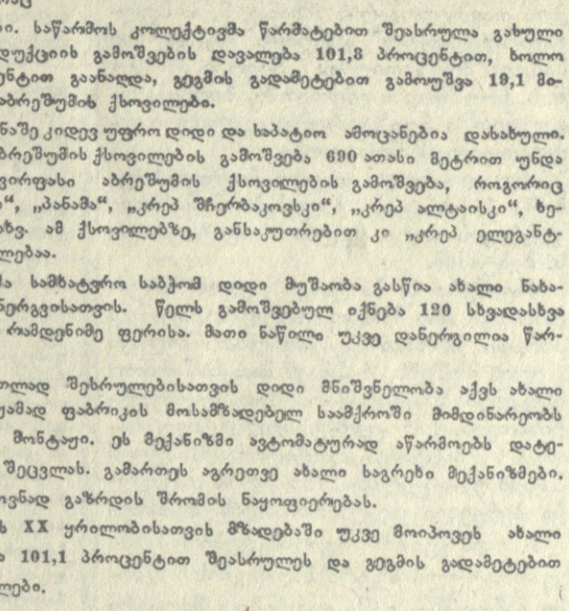 ი. საწარმოს კოლექტივმა წარმატებით შეასრულა გასული
დუქციის გამოშვების დავალება 101,8 პროცენტით, ხოლო
ენტით გაანაღდა, გეგმის გადამეტებით გამოუშვა 19,1 მი-
აბრეშუმის ქსოვილები.
ნაშე კიდევ უფრო დიდი და საპატიო ამოცანებია დასახული.
ბრეშუმის ქსოვილების გამოშვება 690 ათასი მეტრით უნდა
ვირფასი აბრეშუმის ქსოვილების გამოშვება, როგორიც
“, „პანამა“, „კრეპ შჩერბაკოვსკი“, „კრეპ ალტაისკი“, ზე-
ასვ. ამ ქსოვილებზე, განსაკუთრებით კი „კრეპ ელეგანტ-
ლებაა.
ა სამხატვრო საბჭომ დიდი მუშაობა გასწია ახალი ნახა-
ნერგვისათვის. წელს გამოშვებულ იქნება 120 სხვადასხვა
რამდენიმე ფერისა. მათი ნაწილი უკვე დანერგილია წარ-
თლად შესრულებისათვის დიდი მნიშვნელობა აქვს ახალი
ჟამად ფაბრიკის მოსამზადებელ საამქროში მიმდინარეობს
მონტაჟი. ეს მექანიზმი ავტომატურად აწარმოებს დატე-
შეცვლას. გამართეს აგრეთვე ახალი საგრეხი მექანიზმები.
ოვნად გაზრდის შრომის ნაყოფიერებას.
ს XX ყრილობისათვის მზადებაში უკვე მოიპოვეს ახალი
ა 101,1 პროცენტით შეასრულეს და გეგმის გადამეტებით
ლები.